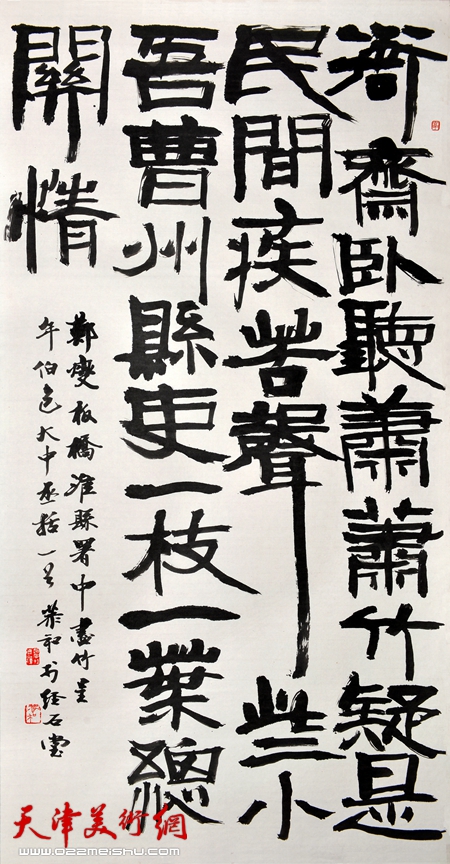 衙齋卧聽蕭蕭竹疑是
民間疾苦聲些小
吾曹州縣吏一枝一葉總
關情
鄭燮板橋濰縣署中畫竹呈
年伯包大中丞括一首 恭和書於石堂
天津美術網
www.022meishu.com